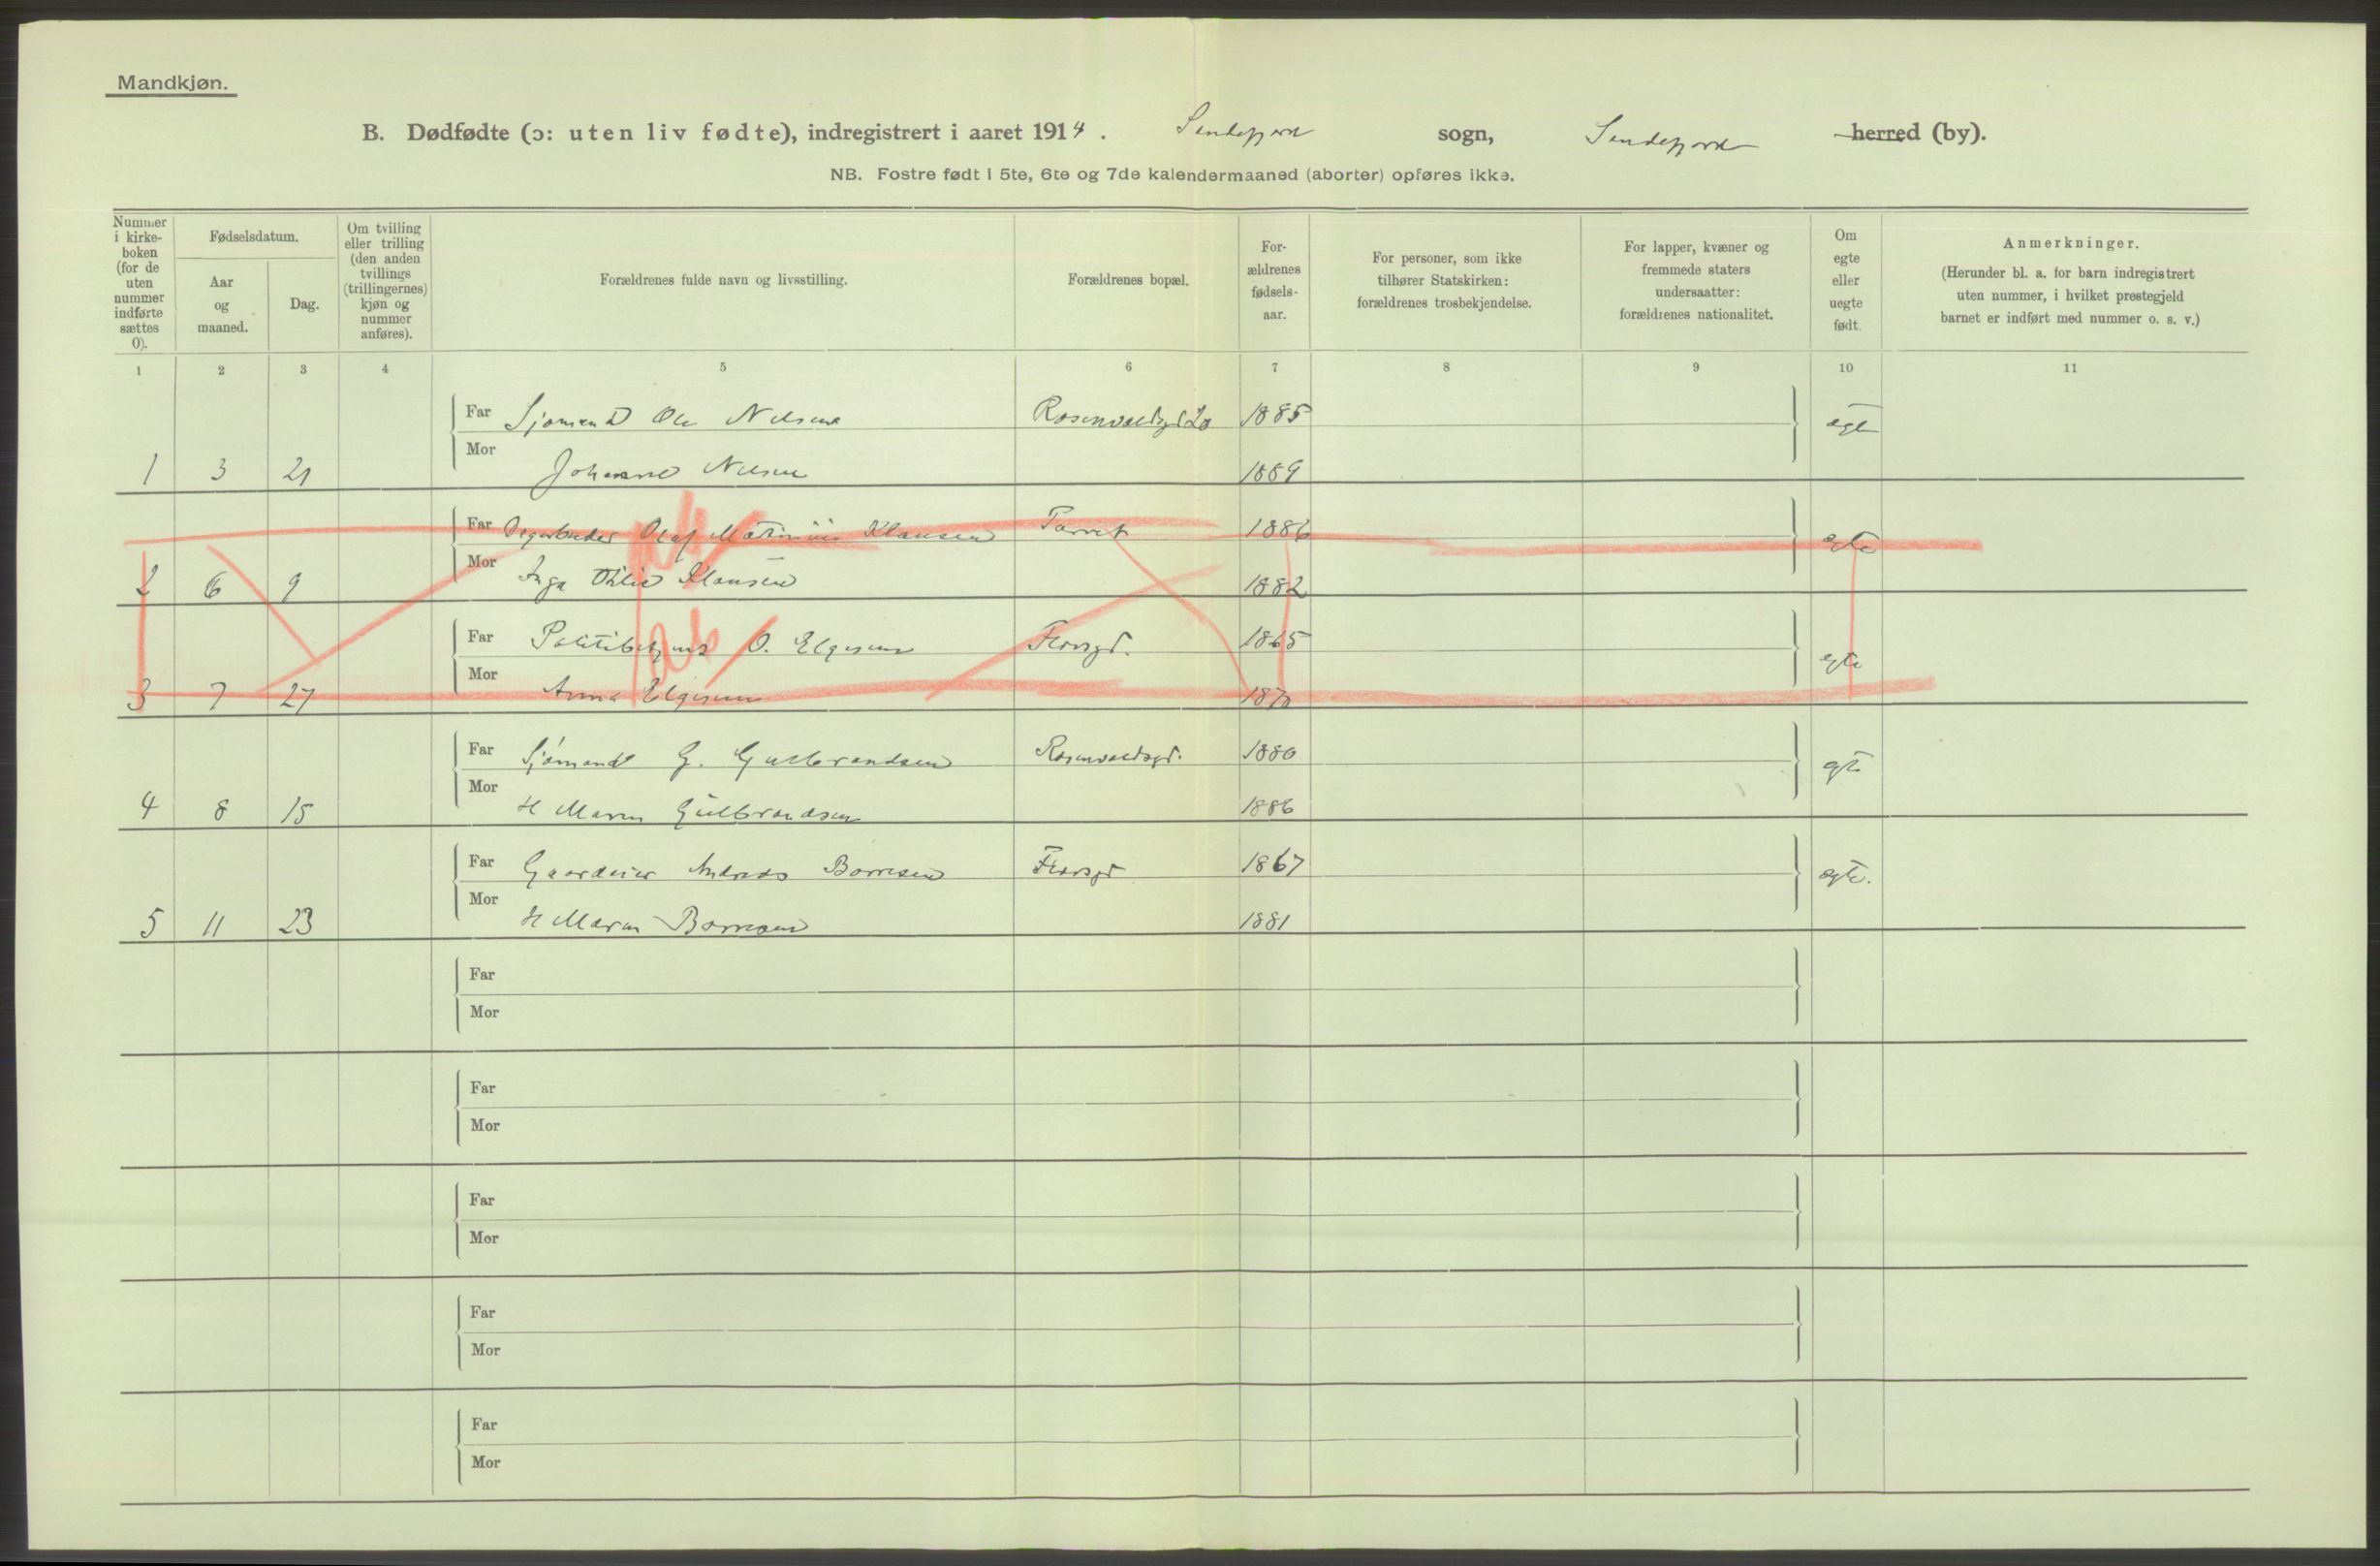 Mandkjøn.
B. Dødfødte (ɔ: uten liv fødte), indregistrert i aaret 1914. Sandefjord sogn, Sandefjord herred (by).
NB. Fostre født i 5te, 6te og 7de kalendermaaned (aborter) opføres ikke.
Nummer i kirke-boken (for de uten nummer indførte sættes 0).
Fødselsdatum.
Aar og maaned.
Dag.
Om tvilling eller trilling (den anden tvillings (trillingernes) kjøn og nummer anføres).
Forældrenes fulde navn og livsstilling.
Forældrenes bopæl.
For-ældrenes fødsels-aar.
For personer, som ikke tilhører Statskirken: forældrenes trosbekjendelse.
For lapper, kvæner og fremmede staters undersaatter: forældrenes nationalitet.
Om egte eller uegte født.
Anmerkninger.
(Herunder bl. a. for barn indregistrert uten nummer, i hvilket prestegjeld barnet er indført med nummer o. s. v.)
1 2 3 4 5 6 7 8 9 10 11
Far Sjømand Ole Nilsen 1885 egte
Mor
1 3 21 Johanne Nilsen 1889
Far Olaf Klausen Torvet 1886 egte
Mor
2 6 9 Inga Othilie Klausen 1882
Far Politibetjent O. Elgesem 1865 egte
Mor
3 7 27 Anna Elgesem 1870
Far Sjømand G. Gulbrandsen Rosenvoldsgt. 1880 egte
Mor
4 8 15 H Maren Gulbrandsen 1886
Far Andreas Borresen 1867 egte.
Mor
5 11 23 H Maren Borresen 1881
Far
Mor
Far
Mor
Far
Mor
Far
Mor
Far
Mor